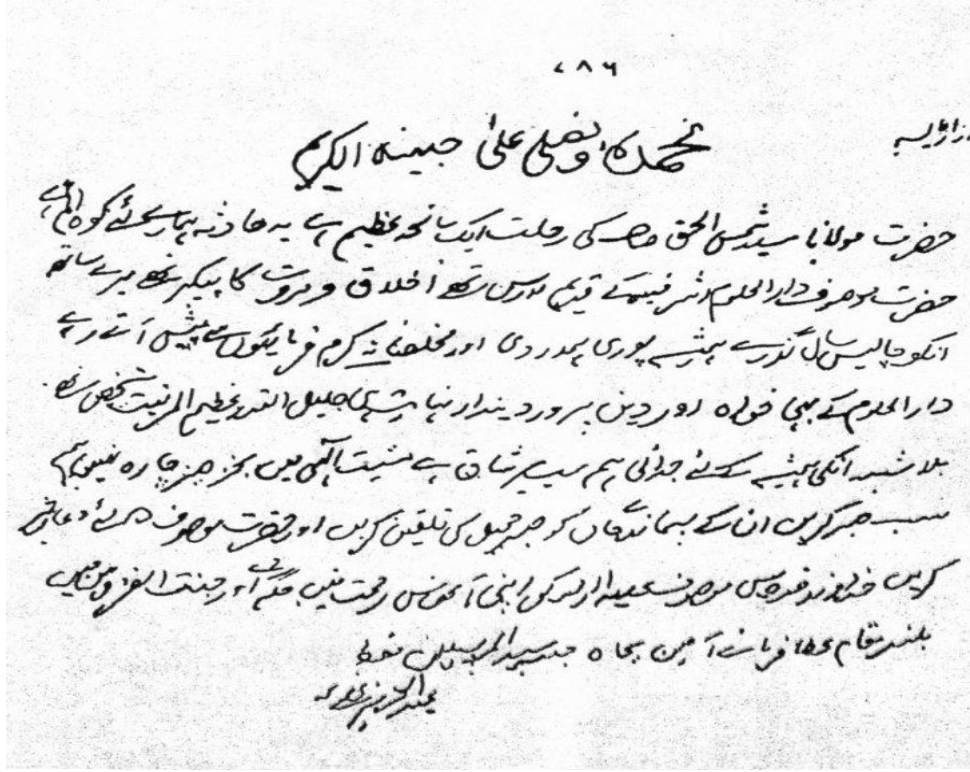 ۷۸۶
نحمدہٗ و نصلی علیٰ حبیبہ الکریم
حضرت مولانا سید شمس الحق صاحب کی رحلت ایک سانحہ عظیم ہے یہ حادثہ ہمارے لئے کوہ الم ہے
حضرت موصوف دارالعلوم اشرفیہ کے قدیم مدرس تھے اخلاق و مروت کا پیکر تھے میرے ساتھ
انکو چالیس سال گذرے ہمیشہ پوری ہمدردی اور مخلصانہ کرم فرمائیوں سے پیش آتے رہے
دارالعلوم کے سچے خواہ اور دین پرور دیندار نہایت ہی جلیل القدر عظیم المرتبت شخص تھے
بلا شبہ انکی ہمیشہ کے لئے جدائی ہم سب پر شاق ہے مشیت الٰہی میں بجز صبر چارہ نہیں ہم
سب صبر کریں ان کے پسماندگان کو صبر جمیل کی تلقین کریں اور حضرت موصوف کے لئے دعا
کریں خداوند قدوس موصوف علیہ الرحمہ کی اپنی آغوش رحمت میں جگہ دے اور جنت الفردوس میں
بلند مقام عطا فرمائے آمین بجاہ حبیبہ سید المرسلین فقط
عبدالعزیز عفی عنہ